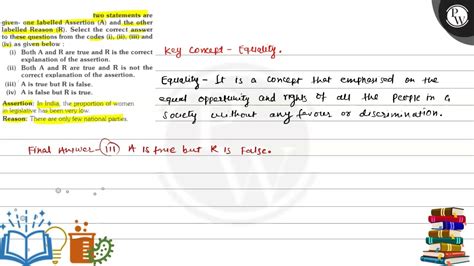 two statements are
given- one labelled Assertion (A) and the other
labelled Reason (R). Select the correct answer
to these questions from the codes (i), (ii), (iii) and
(iv) as given below :
(i) Both A and R are true and R is the correct
explanation of the assertion.
(ii) Both A and R are true and R is not the
correct explanation of the assertion.
(iii) A is true but R is false.
(iv) A is false but R is true.
Assertion: In India, the proportion of women
in legislative has been very low.
Reason: There are only few national parties.
Key Concept - Equality.
Equality - It is a concept that emphasised on the
equal opportunity and rights of all the people in a
society without any favour or discrimination.
Final Answer - (iii) A is true but R is False.